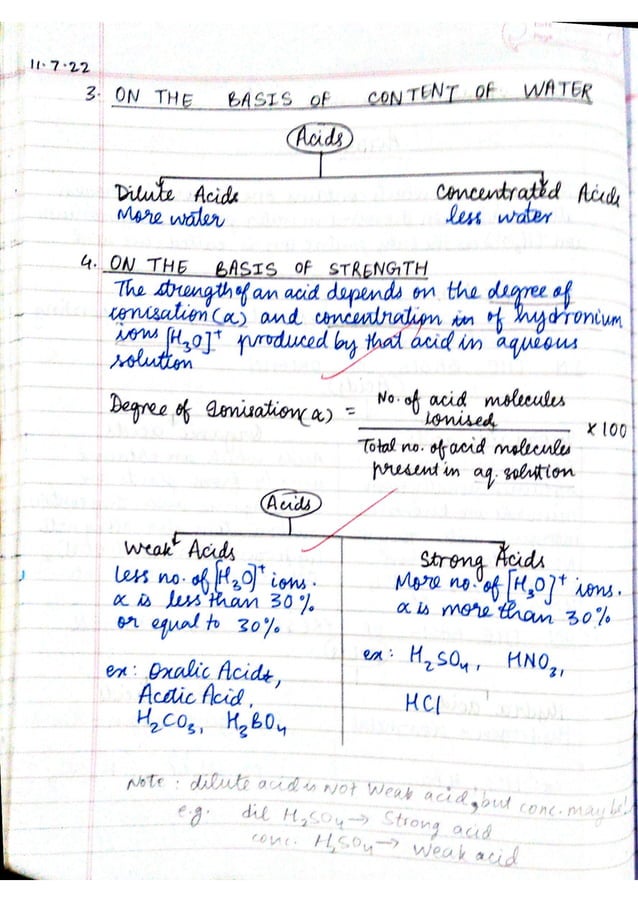 11.7.22
3. ON THE BASIS OF CONTENT OF WATER
Acids
Dilute Acids Concentrated Acids
More water less water
4. ON THE BASIS OF STRENGTH
The strength of an acid depends on the degree of
ionisation (α) and concentration in of hydronium
ions [H₃O]⁺ produced by that acid in aqueous
solution
Degree of Ionisation(α) = No. of acid molecules
ionised
× 100
Total no. of acid molecules
present in aq. solution
Acids
Weak Acids Strong Acids
Less no. of [H₃O]⁺ ions. More no. of [H₃O]⁺ ions.
α is less than 30% α is more than 30%
or equal to 30%
ex: H₂SO₄, HNO₃,
ex: Oxalic Acid,
Acetic Acid, HCl
H₂CO₃, H₃BO₄
Note: dilute acid is not weak acid, but conc. may be!
e.g. dil H₂SO₄ → Strong acid
conc. H₂SO₄ → weak acid